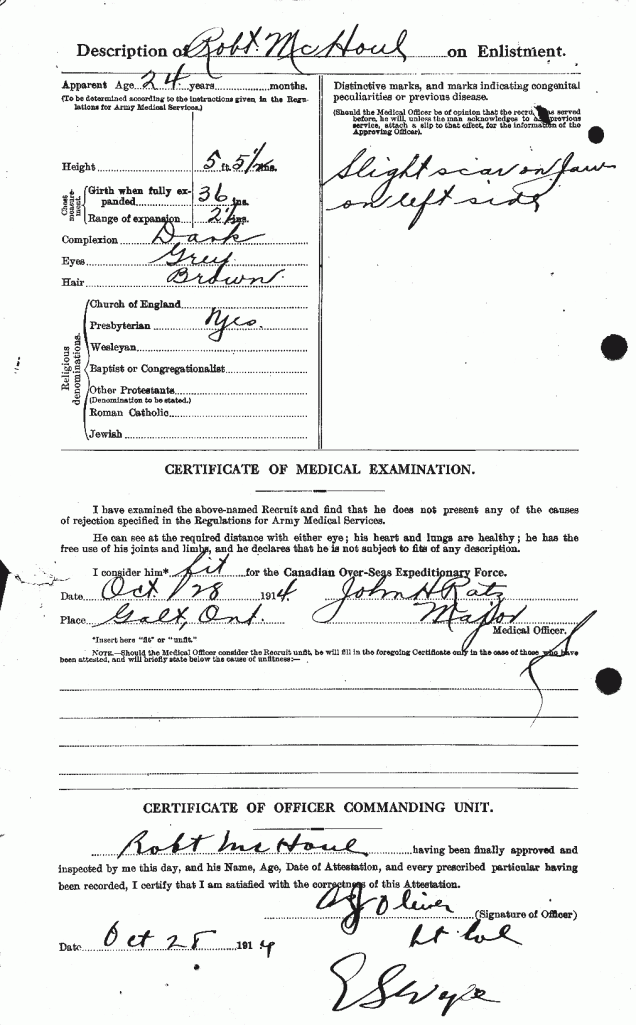 Description of Robt. McHoul on Enlistment.
Apparent Age 24 years months.
(To be determined according to the instructions given in the Regulations for Army Medical Services.)
Height 5 ft. 5½ ins.
Chest measurement.
Girth when fully expanded 36 ins.
Range of expansion 2½ ins.
Complexion Dark
Eyes Grey
Hair Brown
Religious denominations.
Church of England
Presbyterian Yes.
Wesleyan
Baptist or Congregationalist
Other Protestants
(Denomination to be stated.)
Roman Catholic
Jewish
Distinctive marks, and marks indicating congenital
peculiarities or previous disease.
(Should the Medical Officer be of opinion that the recruit has served
before, he will, unless the man acknowledges to any previous
service, attach a slip to that effect, for the information of the
Approving Officer).
Slight scar on Jaw
on left side
CERTIFICATE OF MEDICAL EXAMINATION.
I have examined the above-named Recruit and find that he does not present any of the causes
of rejection specified in the Regulations for Army Medical Services.
He can see at the required distance with either eye; his heart and lungs are healthy; he has the
free use of his joints and limbs, and he declares that he is not subject to fits of any description.
I consider him* fit for the Canadian Over-Seas Expeditionary Force.
Date Oct 28 1914. John H Ratz
Place Galt, Ont. Major
Medical Officer.
*Insert here "fit" or "unfit."
NOTE.—Should the Medical Officer consider the Recruit unfit, he will fill in the foregoing Certificate only in the case of those who have
been attested, and will briefly state below the cause of unfitness:—
CERTIFICATE OF OFFICER COMMANDING UNIT.
Robt McHoul having been finally approved and
inspected by me this day, and his Name, Age, Date of Attestation, and every prescribed particular having
been recorded, I certify that I am satisfied with the correctness of this Attestation.
Oliver (Signature of Officer)
Lt Col
Date Oct 28 1914